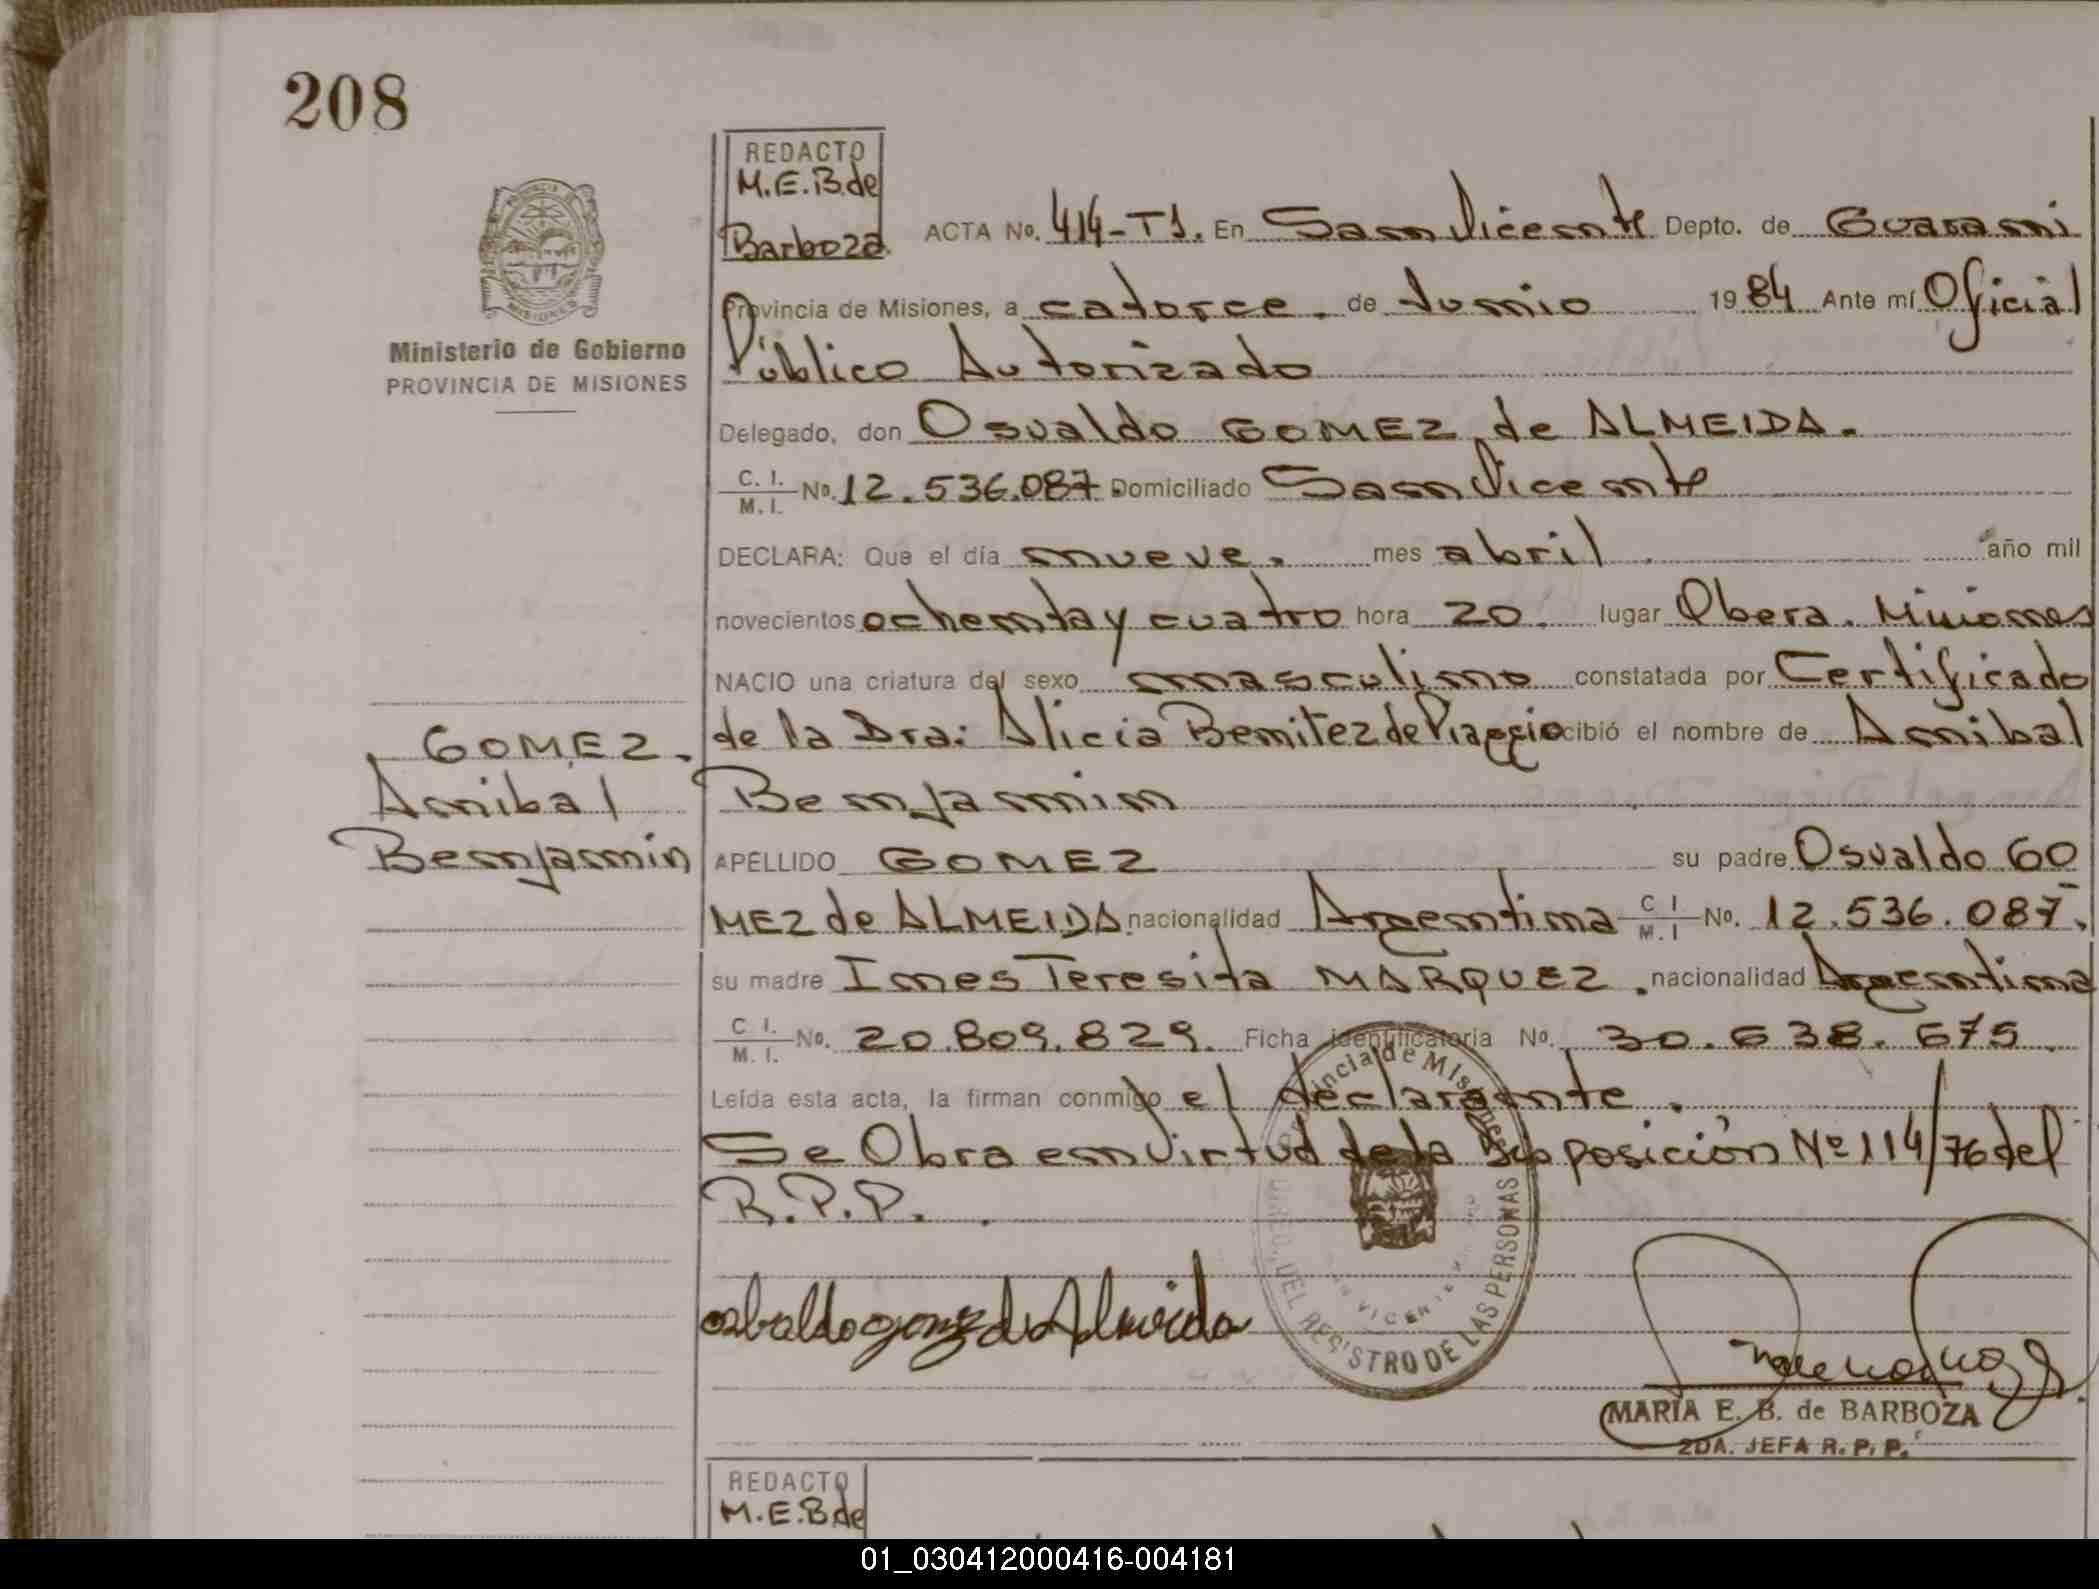 208
REDACTO
M.E.B.de
Barboza
Ministerio de Gobierno
PROVINCIA DE MISIONES
ACTA No. 414-T1. En San Vicente Depto. de Guarani
Provincia de Misiones, a catorce. de Junio 1984 Ante mí Oficial
Público Autorizado
Delegado, don Osvaldo GOMEZ de ALMEIDA.
C. I. / M. I. No. 12.536.087 Domiciliado San Vicente
DECLARA: Que el día nueve. mes abril año mil
novecientos ochenta y cuatro hora 20. lugar Obera. Misiones
NACIO una criatura del sexo masculino constatada por Certificado
de la Dra: Alicia Benitez de Piaggio cibió el nombre de Annibal
Benjamin
GOMEZ.
Annibal
Benjamin
APELLIDO GOMEZ su padre Osvaldo GO
MEZ de ALMEIDA. nacionalidad Argentina C I / M. I No. 12.536.087.
su madre Ines Teresita MARQUEZ. nacionalidad Argentina
C I. / M. I. No. 20.809.829. Ficha identificatoria No. 30.638.675.
Leída esta acta, la firman conmigo el declarante.
Se Obra en virtud de la Disposición Nº 114/76 del
R.P.P.
Provincia de Misiones
DEL REGISTRO DE LAS PERSONAS
VICENTE
osbaldo gomez de Almeida
MARIA E. B. de BARBOZA
2DA. JEFA R. P. P.
REDACTO
M.E.B.de
01_030412000416-004181